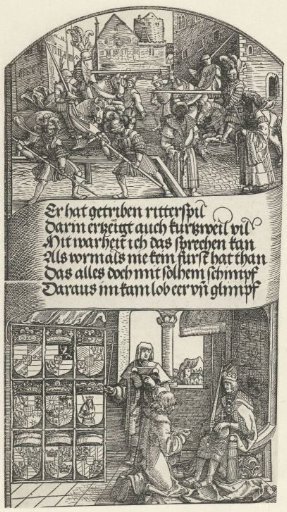 Er hat getriben ritterspil
Darin ertzeigt auch kurtzweil vil
Mit warheit ich das sprechen kan
Als vormals nie kein furst hat than
Das alles doch mit solhem schimpf
Daraus im kam lob eer vñ glimpf